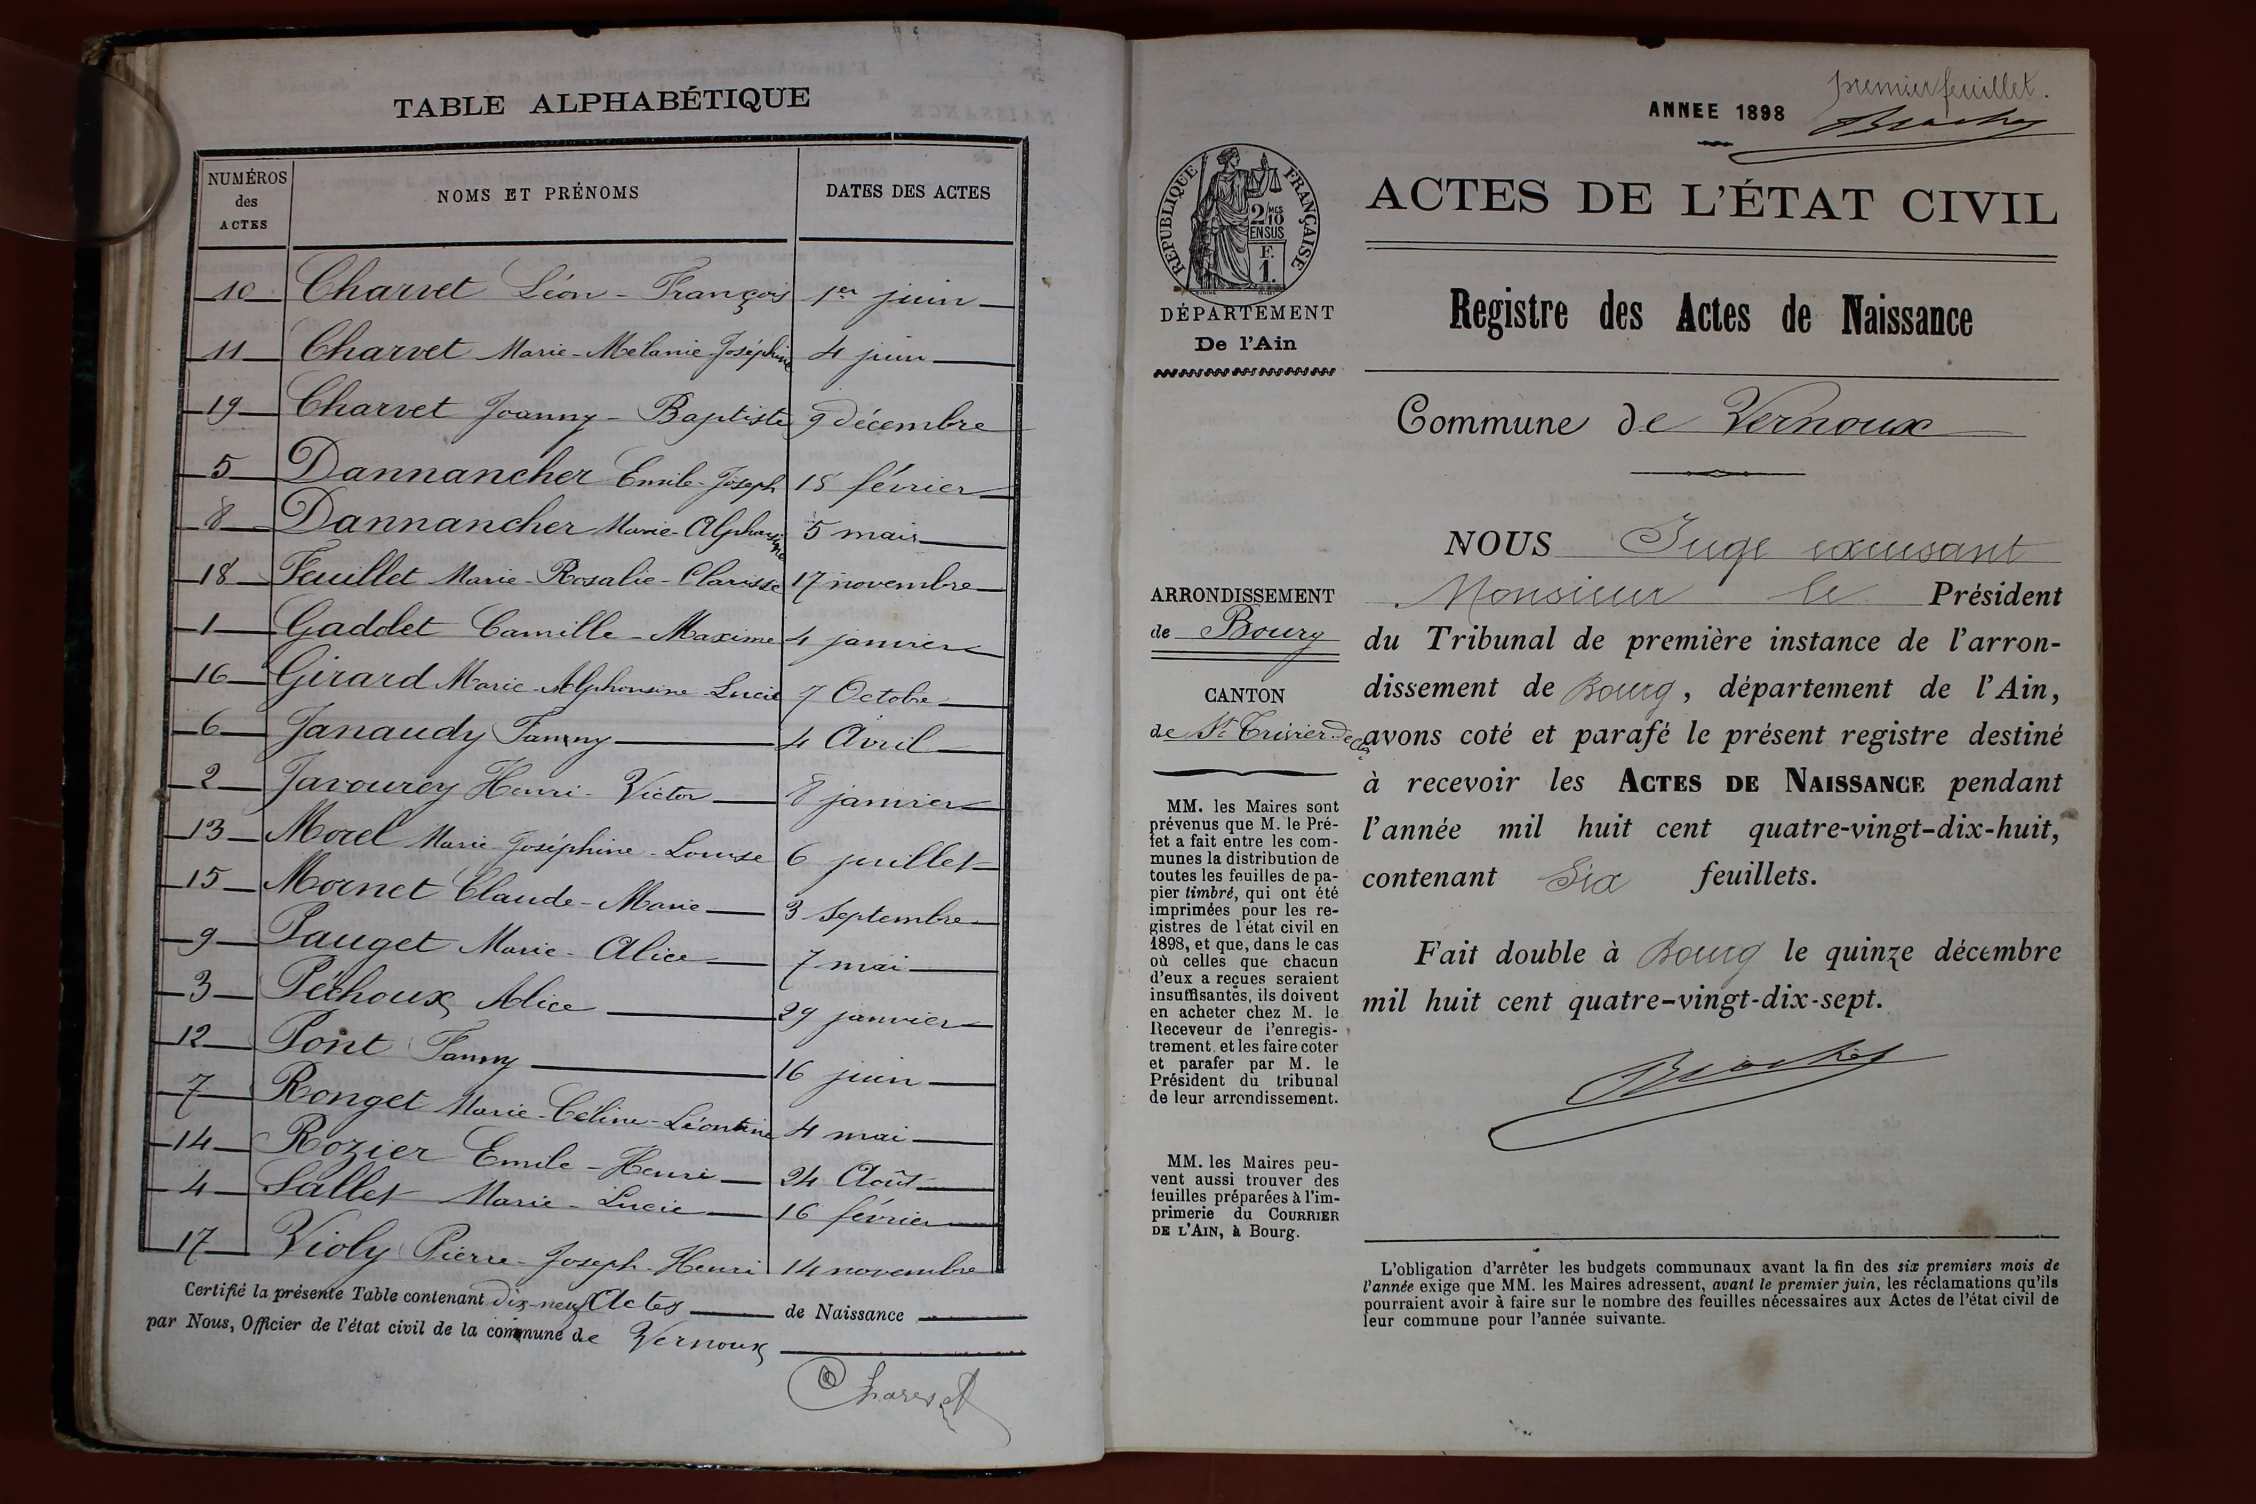 TABLE ALPHABÉTIQUE
NUMÉROS des ACTES
NOMS ET PRÉNOMS
DATES DES ACTES
10 Charvet Léon-François 1er juin
11 Charvet Marie-Mélanie-Joséphine 4 juin
19 Charvet Joanny-Baptiste 9 décembre
5 Dannancher Emile-Joseph 18 février
8 Dannancher Marie-Alphonsine 5 mai
18 Feuillet Marie-Rosalie-Clarisse 17 novembre
1 Gaddet Camille-Maxime 4 janvier
16 Girard Marie-Alphonsine-Lucie 7 Octobre
6 Janaudy Fanny 4 Avril
2 Javourey Henri-Victor 8 janvier
13 Morel Marie-Joséphine-Louise 6 juillet
15 Mornet Claude-Marie 3 Septembre
9 Pauget Marie-Alice 7 mai
3 Péchoux Alice 29 janvier
12 Pont Fanny 16 juin
7 Ronget Marie-Céline-Léontine 4 mai
14 Rozier Emile-Henri 24 Août
4 Sallet Marie-Lucie 16 février
17 Violy Pierre-Joseph-Henri 14 novembre
Certifié la présente Table contenant dix-neuf Actes de Naissance
par Nous, Officier de l'état civil de la commune de Vernoux
Charvet
premier feuillet.
ANNEE 1898
RÉPUBLIQUE FRANÇAISE
2/10 EN SUS
F. 1.
DÉPARTEMENT
De l'Ain
ARRONDISSEMENT
de Bourg
CANTON
de St Trivier de Ctes
MM. les Maires sont
prévenus que M. le Pré-
fet a fait entre les com-
munes la distribution de
toutes les feuilles de pa-
pier timbré, qui ont été
imprimées pour les re-
gistres de l'état civil en
1898, et que, dans le cas
où celles que chacun
d'eux a reçues seraient
insuffisantes, ils doivent
en acheter chez M. le
Receveur de l'enregis-
trement, et les faire coter
et parafer par M. le
Président du tribunal
de leur arrondissement.
MM. les Maires peu-
vent aussi trouver des
feuilles préparées à l'im-
primerie du COURRIER
DE L'AIN, à Bourg.
ACTES DE L'ÉTAT CIVIL
Registre des Actes de Naissance
Commune de Vernoux
NOUS Juge excusant
Monsieur le Président
du Tribunal de première instance de l'arron-
dissement de Bourg, département de l'Ain,
avons coté et parafé le présent registre destiné
à recevoir les ACTES DE NAISSANCE pendant
l'année mil huit cent quatre-vingt-dix-huit,
contenant Six feuillets.
Fait double à Bourg le quinze décembre
mil huit cent quatre-vingt-dix-sept.
L'obligation d'arrêter les budgets communaux avant la fin des six premiers mois de
l'année exige que MM. les Maires adressent, avant le premier juin, les réclamations qu'ils
pourraient avoir à faire sur le nombre des feuilles nécessaires aux Actes de l'état civil de
leur commune pour l'année suivante.